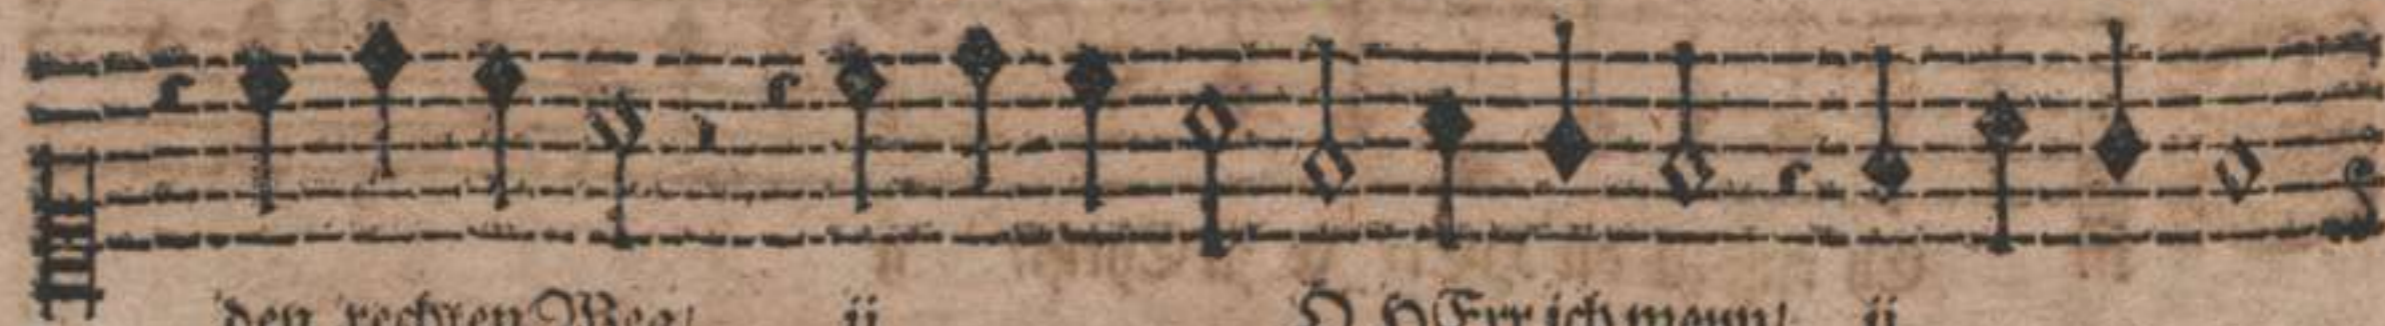 den rechten Weg/ ij O HErr ich mein/ ij